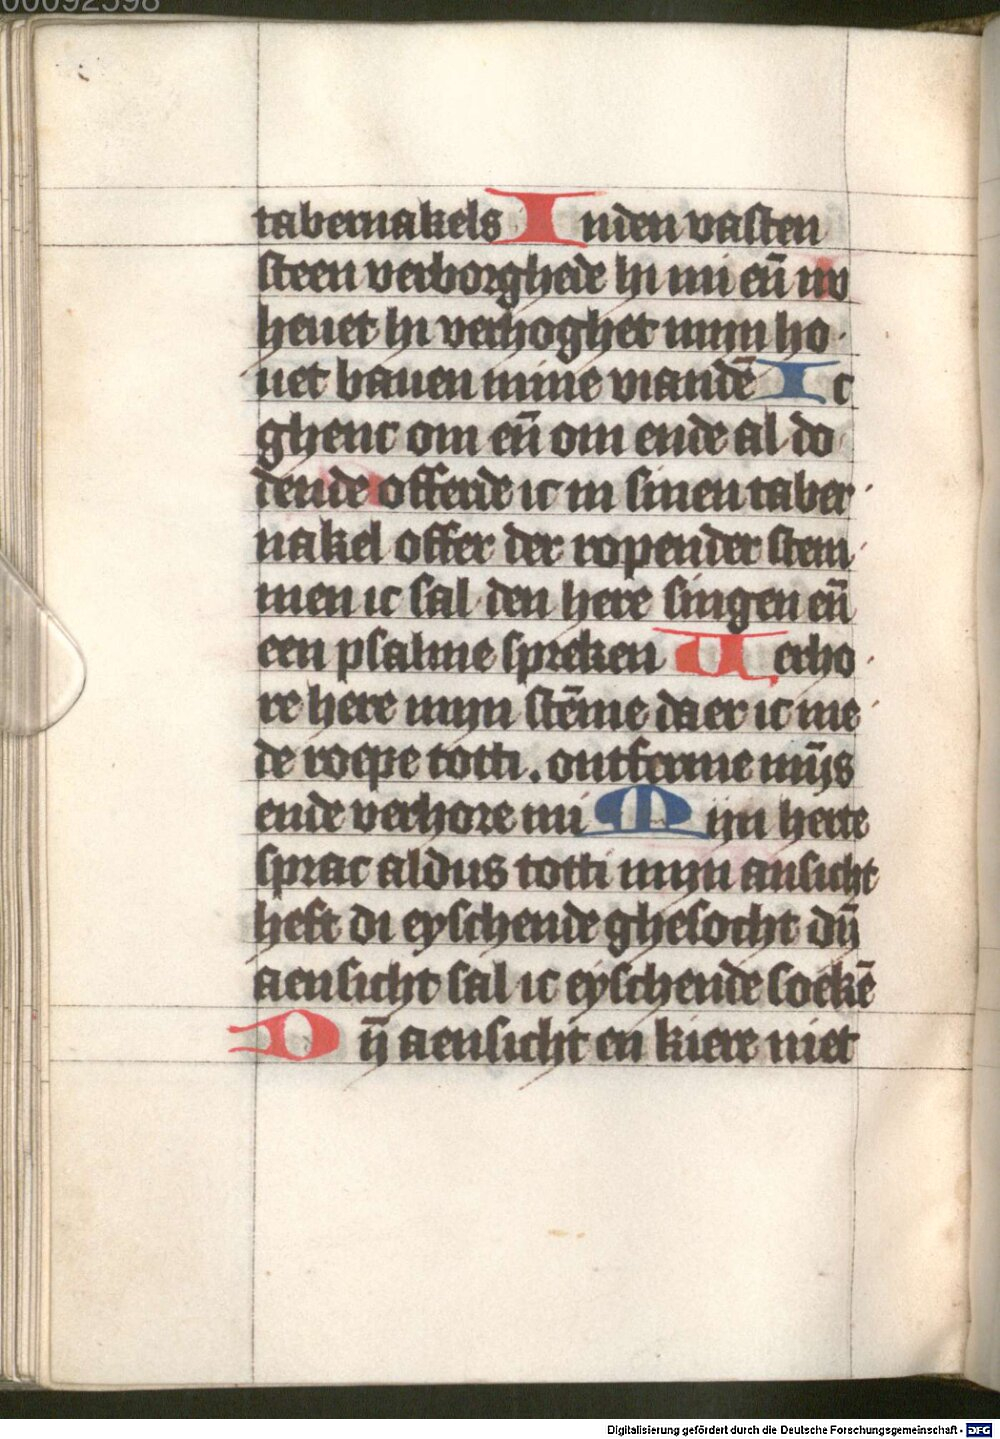 00092598
tabernakels Inden vasten
steen verborghede hi mi en̄ nv
heuet hi verhoghet mijn ho
uet bauen mine viandē Ic
ghenc om en̄ om ende al do
dende offerde ic in sinen taber
nakel offer der ropender stem
men ic sal den here singen en̄
een psalme spreken Uerho
re here mijn stēme daer ic me
de roepe totti. ontferme mijs
ende verhore mi Mijn herte
sprac aldus totti mijn ansicht
heft di eyschende ghesocht dij̄
aensicht sal ic eyschende soekē
Dij̄ aensicht en kiere niet
Digitalisierung gefördert durch die Deutsche Forschungsgemeinschaft - DFG